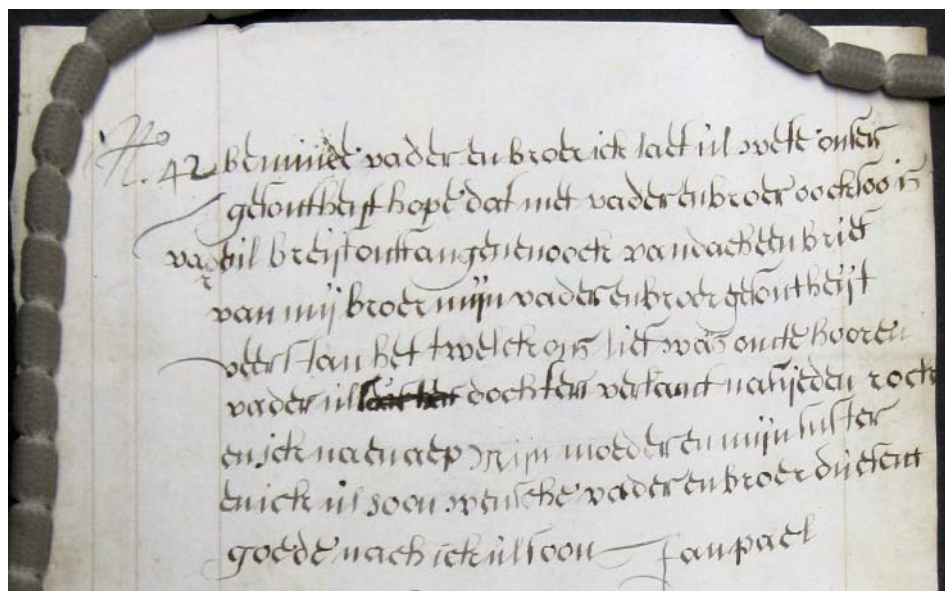 No. 42 beminde vader en broer ick laet ul wete onsen
gesontheijt hope dat met vader en broer oock soo is
vader ul breijf ontfangen en oock vandach een brief
van mij broer mijn vader en broer gesontheijt
verstan het twelck ons lief was om te hooren
vader ul dochters verlanct na rock
en ick na en aep Mijn moeder en mijn suster
en ick ul soon wensche vader en broer duesent
goede nach ick ul soon Jan pael